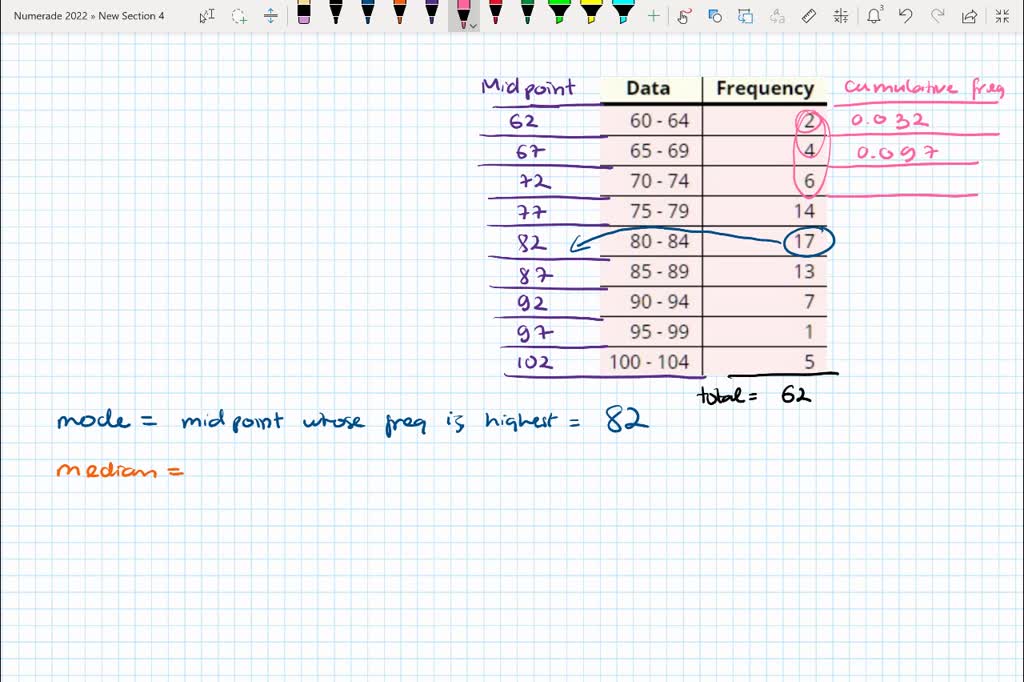 Numerade 2022 » New Section 4
3
Midpoint Data Frequency Cumulative freq
62 60 - 64 2 0.032
67 65 - 69 4 0.097
72 70 - 74 6
77 75 - 79 14
82 80 - 84 17
87 85 - 89 13
92 90 - 94 7
97 95 - 99 1
102 100 - 104 5
total = 62
mode = midpoint whose freq is highest = 82
median =